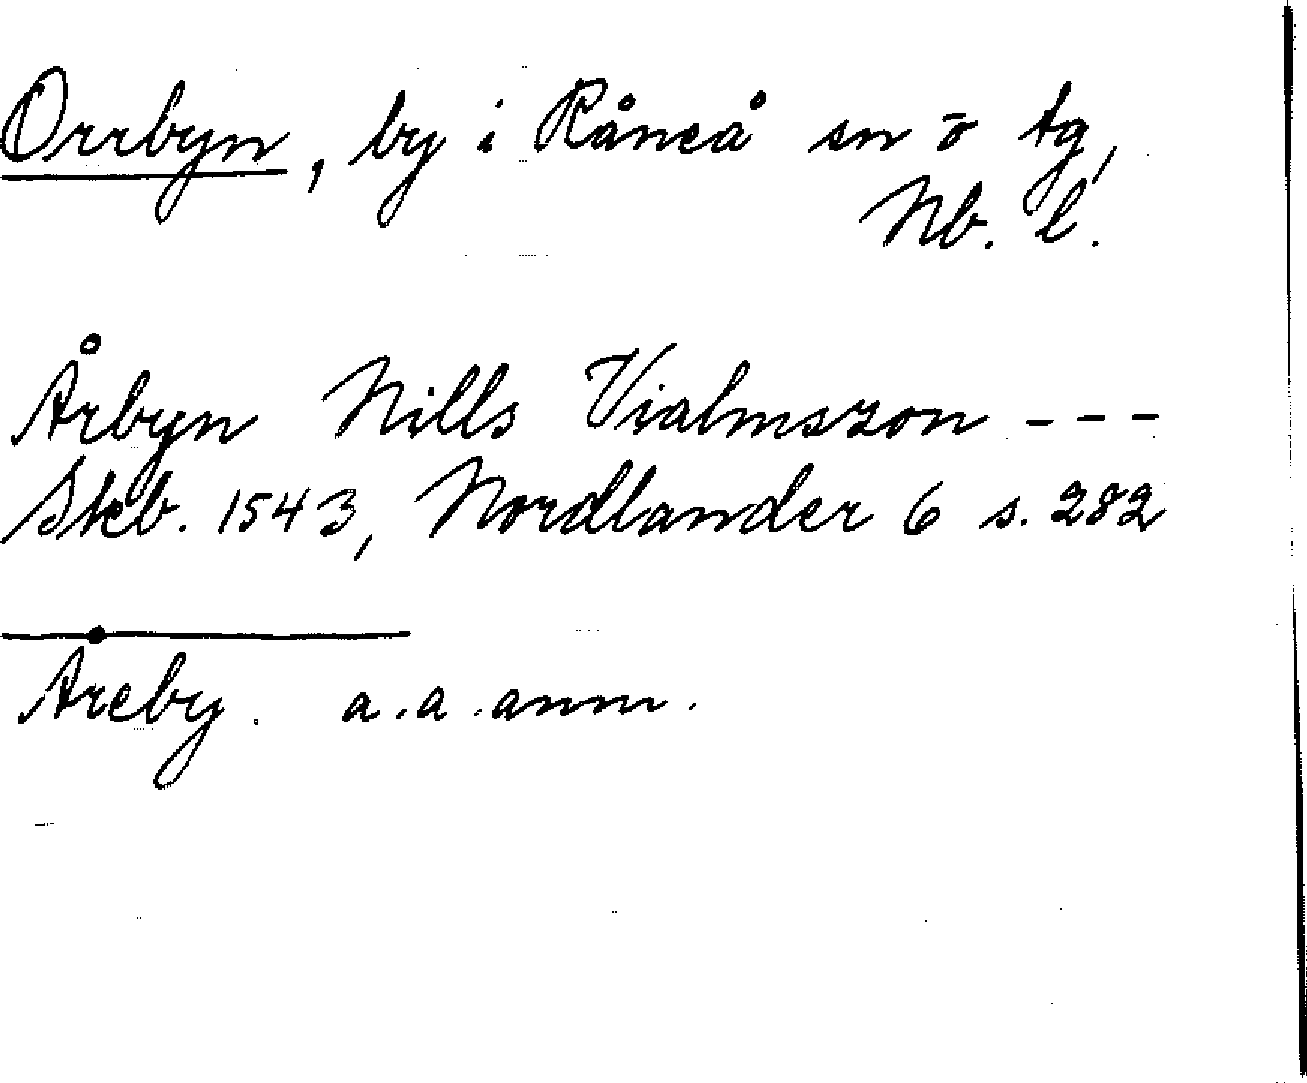 Orrbyn, by i Råneå sn o tg,
Nb. l.
Årbyn Nills Vialmszon ---
Skb. 1543, Nordlander 6 s. 282
Åreby. a.a.anm.